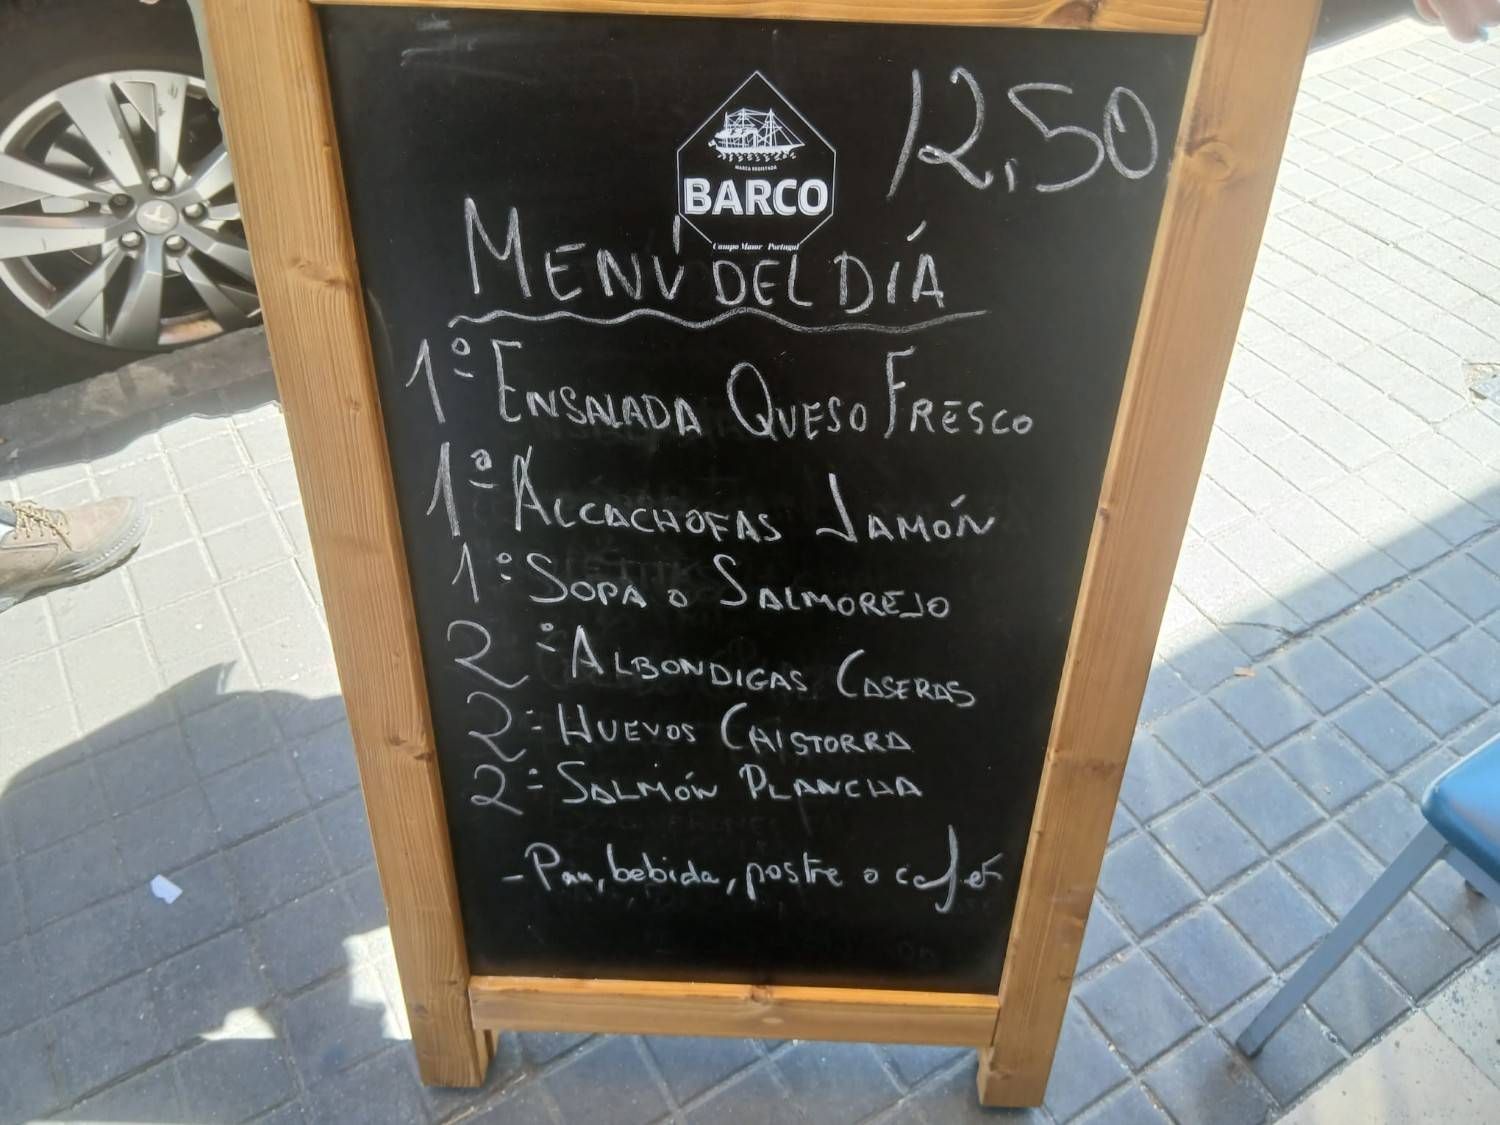 12,50
MARCA REGISTADA
BARCO
Campo Maior - Portugal
MENÚ DEL DÍA
1º ENSALADA QUESO FRESCO
1º ALCACHOFAS JAMÓN
1º SOPA O SALMOREJO
2º ALBONDIGAS CASERAS
2º HUEVOS CHISTORRA
2º SALMÓN PLANCHA
- Pan, bebida, postre o café